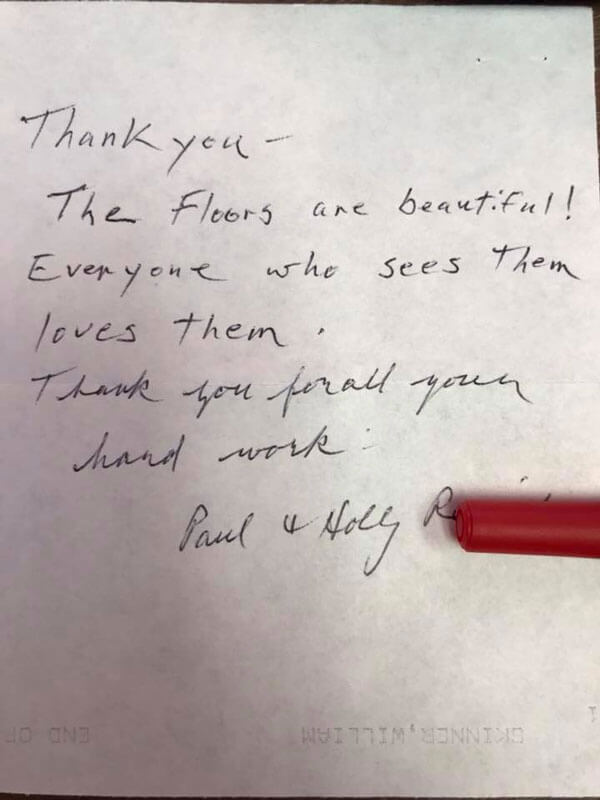 Thank you -
The Floors are beautiful!
Everyone who sees them
loves them.
Thank you for all your
hard work.
Paul & Holly
SKINNER,WILLIAM
END OF